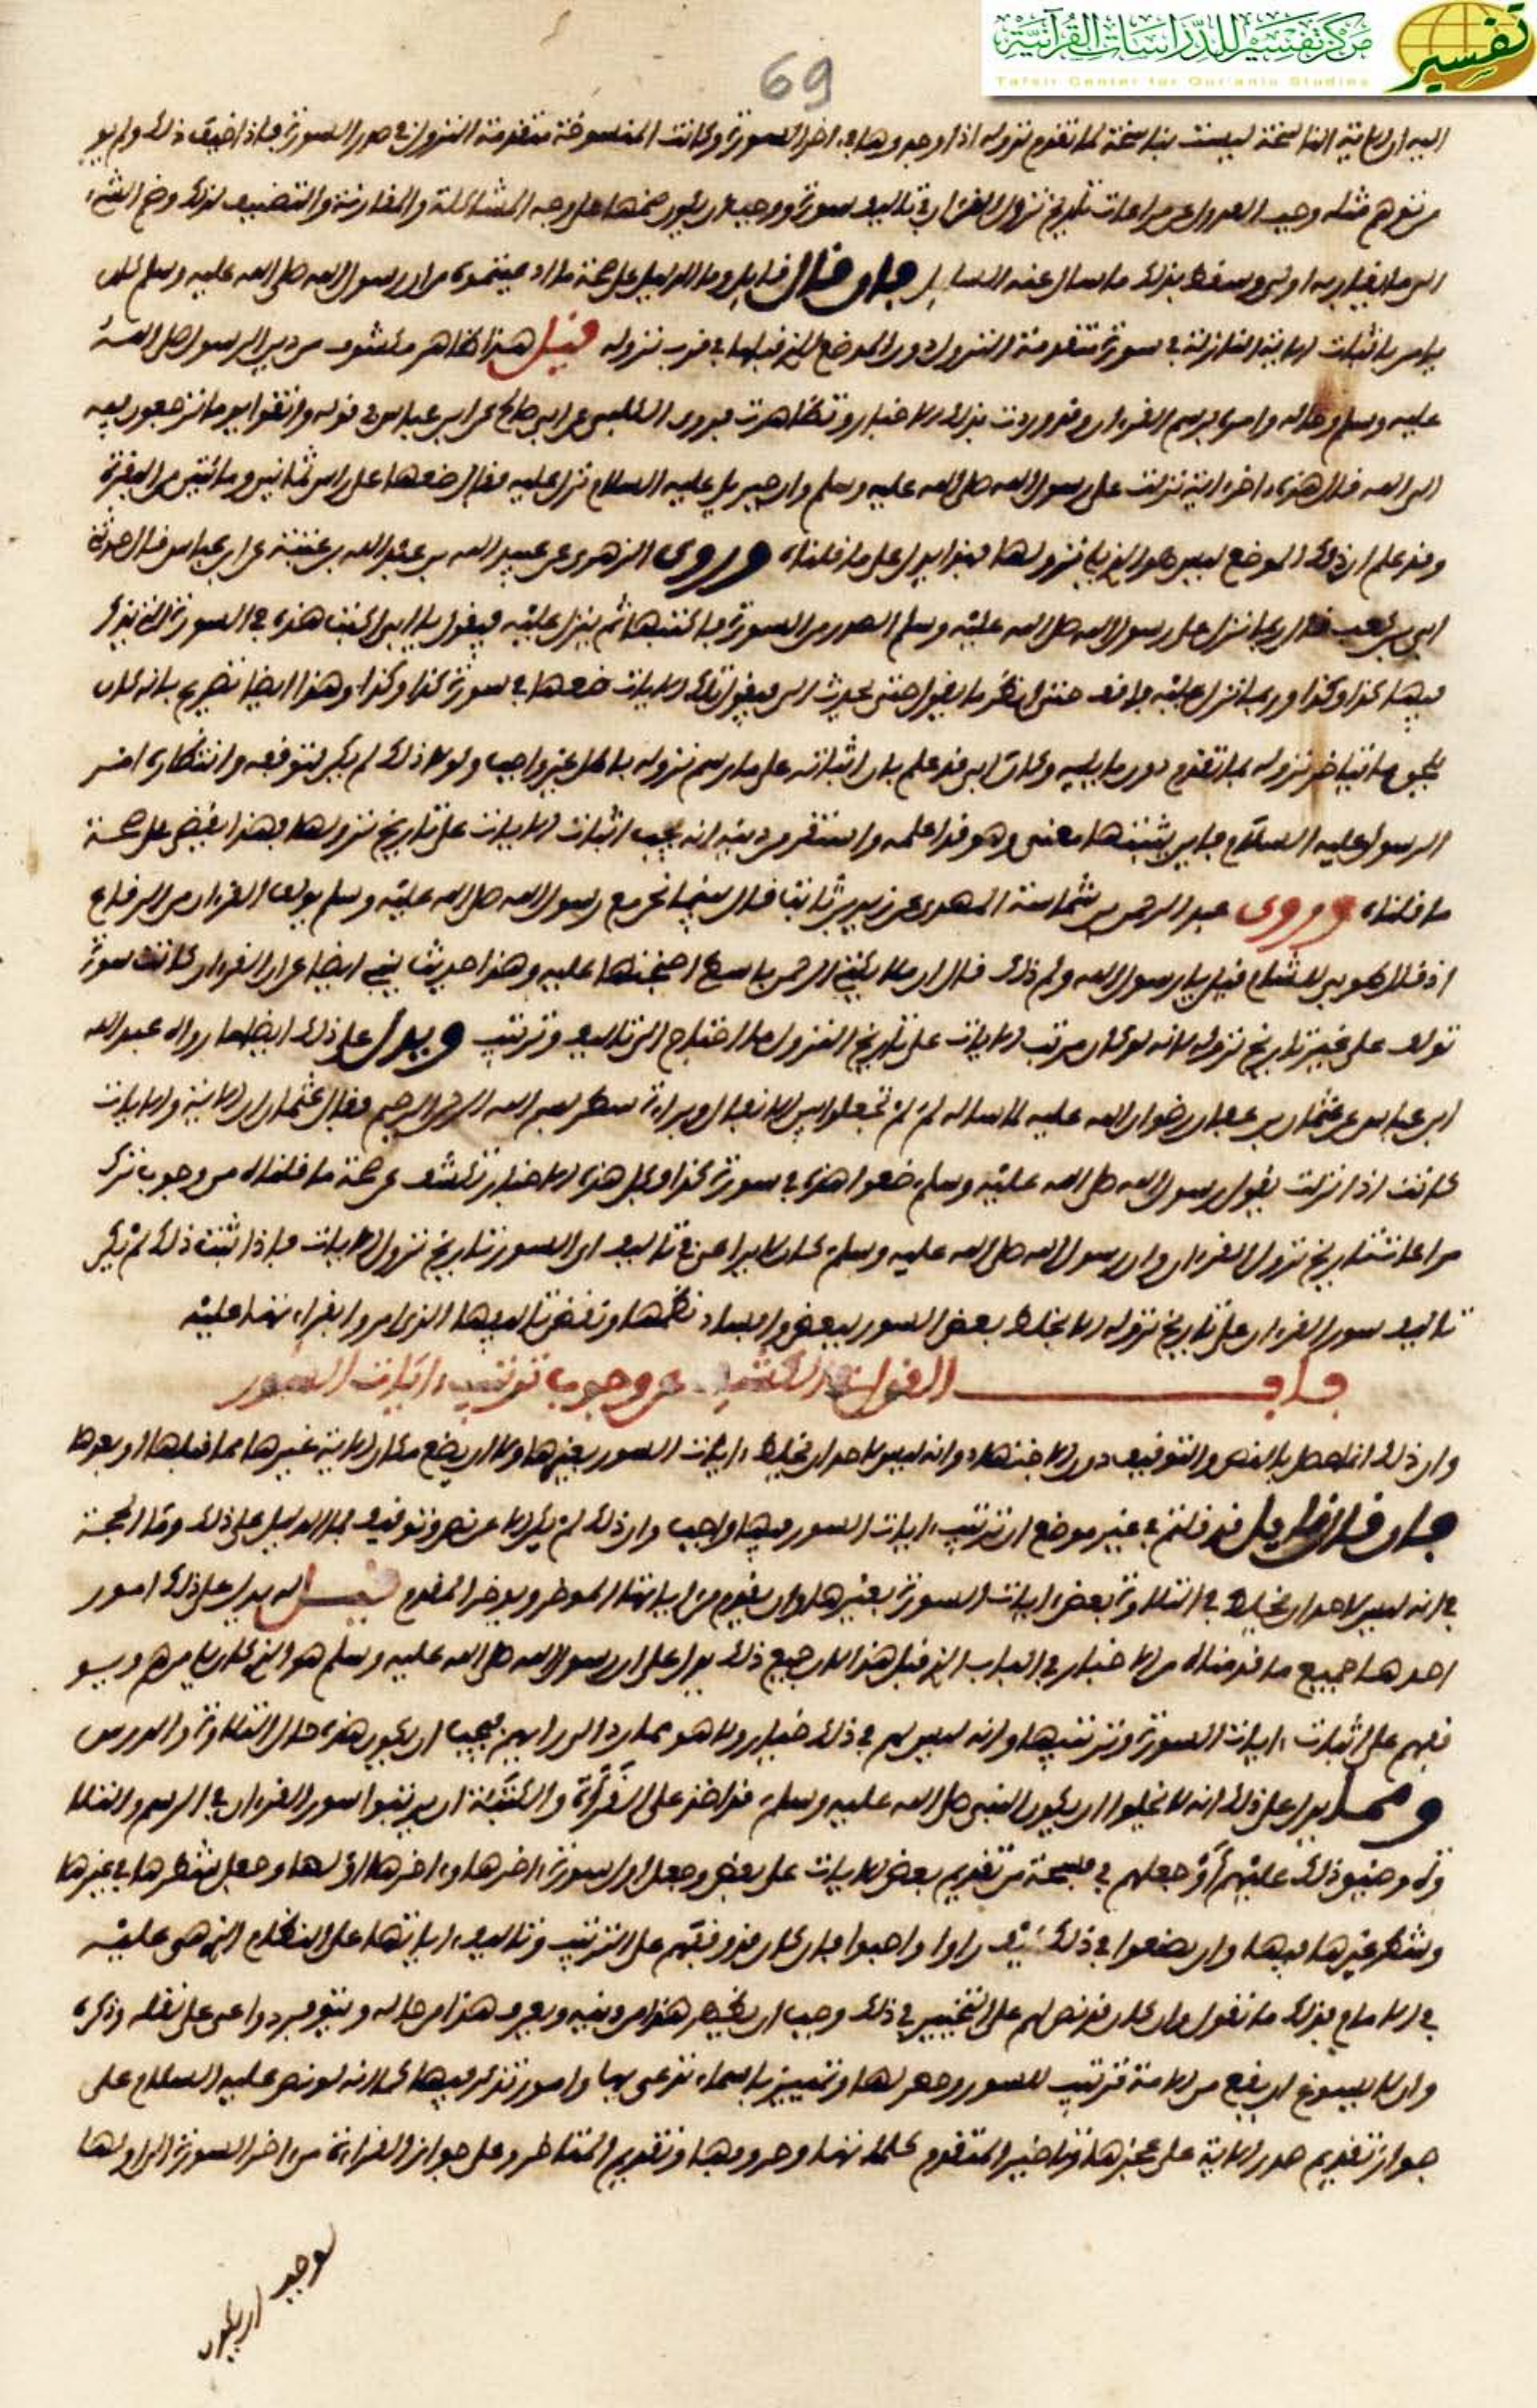 مركز تفسير للدراسات القرآنية
تفسير
Tafsir Center for Qur'anic Studies
69
اليه ان الاية الناسخة ليست بناسخة لما تقدم نزوله اذا وجدوها في اخر السورة وكانت المنسوخة متقدمة النزول في صدر السورة فاذا ضيف ذلك ولم يو
من توهم مثله وجب العدول عن مراعات تاريخ نزول القران في تاليف سوره ووجب ان يكون ضمها على وجه المشاكلة والمقاربة والتضيف لذلك وضم الشيء
الى ما يقاربه اولى وسقط بذلك ما سال عنه السايل فان قال قايل وما الدليل على صحة ما ادعيتموه من ان رسول الله صلى الله عليه وسلم كان
يامر باثبات الاية النازلة في سورة متقدمة النزول دون الموضع الذي قبلها في قرب نزوله قيل هذا ظاهر مكشوف من دين الرسول صلى الله
عليه وسلم وحاله وامره برسم القران وقد وردت بذلك الاخبار وتظاهرت فروى الكلبي عن ابي صالح عن ابن عباس في قوله واتقوا يوما ترجعون فيه
الى الله قال هذه اخر اية نزلت على رسول الله صلى الله عليه وسلم وان جبريل عليه السلام نزل عليه فقال ضعها على راس ثمانين ومائتين من البقرة
وقد علم ان ذلك الموضع ليس هو الذي يلي نزولها فهذا يدل على ما قلناه وروى الزهري عن عبيد الله بن عبد الله بن عتبة عن ابن عباس قال حدثني
ابي بن كعب قال ربما نزل على رسول الله صلى الله عليه وسلم الصدر من السورة فاكتبها ثم ينزل عليه فيقول يا ابي اكتب هذه في السورة التي يذكر
فيها كذا وكذا وربما نزل عليه فاقف حتى انظر ما يقول حتى يحدث الي فيقول تلك الايات ضعها في سورة كذا وكذا وهذا ايضا تصريح بانه كان
يلحق ما تاخر نزوله بما تقدم دون ما يليه وكان ابي قد علم بان اثباته على ما رسم نزوله باطل غير واجب ولولا ذلك لم يكن لتوقفه وانتظاره امر
الرسول عليه السلام فاين يثبتها معنى وهو قد اعلمه واستقر من دينه انه يجب اثبات الايات على تاريخ نزولها فهذا يقضي على صحة
ما قلناه وروى عبد الرحمن بن شماسة المهري عن زيد بن ثابت قال بينما نحن مع رسول الله صلى الله عليه وسلم نولف القران من الرقاع
اذ قال طوبى للشام قيل يا رسول الله ولم ذلك قال ان ملائكة الرحمن باسطة اجنحتها عليه وهذا حديث يبي ايضا عن ان القران كانت سوره
تولف على غير تاريخ نزوله لانه لو كان مرتب الايات على تاريخ النزول ما احتاج الى تاليف وترتيب ويدل على ذلك ايضا ما رواه عبد الله
ابن عباس عن عثمان بن عفان رضوان الله عليه لما ساله لم لم تجعلوا بين الانفال وبراءة سطر بسم الله الرحمن الرحيم فقال عثمان ان الاية والايات
كانت اذا نزلت يقول رسول الله صلى الله عليه وسلم ضعوا هذه في سورة كذا وكل هذه الاخبار تكشف عن صحة ما قلناه من وجوب ترك
مراعات تاريخ نزول القران وان رسول الله صلى الله عليه وسلم كان لا يراعي في تاليف اي السور تاريخ نزول الايات فاذا ثبت ذلك لم يكن
تاليف سور القران على تاريخ نزوله الا بخلط بعض السور ببعض وافساد نظمها ونقض تاليفها الذي امروا بقراءتها عليه
باب القول في الكشف عن وجوب ترتيب ايات السور
وان ذلك انما حصل بالنص والتوقيف دون الاجتهاد وانه ليس لاحد ان يخلط ايات السور بغيرها ولا ان يضع مكان الاية غيرها مما قبلها او بعدها
فان قال قايل قد قلتم في غير موضع ان ترتيب ايات السور فيها واجب وان ذلك لم يكن الا عن نص وتوقيف فما الدليل على ذلك وما الحجة
في انه ليس لاحد ان يخلط في التلاوة بعض ايات السورة بغيرها وان يقدم من اياتها الموخر ويوخر المقدم قيل له يدل على ذلك امور
احدها جميع ما قدمناه من الاخبار في الباب الذي قبل هذا لان جميع ذلك يدل على ان رسول الله صلى الله عليه وسلم هو الذي كان يامرهم ويو
قفهم على اثبات ايات السورة وترتيبها وانه ليس لهم في ذلك خيار ولا هو مما رد الى رايهم فيجب ان يكون هذه حال التلاوة والدرس
ومما يدل على ذلك انه لا يخلوا ان يكون النبي صلى الله عليه وسلم قد اخذ على القرأة والكتبة ان يرتبوا سور القران في الرسم والتلا
وة وضيق ذلك عليهم أو جعلهم في فسحة من تقديم بعض الايات على بعض وجعل اول سورة اخرها واخرها اولها وجعل شطرها في غيرها
وشطر غيرها فيها وان يصنعوا في ذلك كيف راوا واحبوا فان كان قد وقفهم على الترتيب وتاليف اياتها على النظام الذي هي عليه
في الامام فذلك ما نقول وان كان قد نص لهم على التخيير في ذلك وجب ان يظهر هذا من دينه ويعرف هذا من حاله وتتوفر دواعي على نقله وذكره
وان لا يسوغ ان يقع من الامة ترتيب للسور وحصر لها وتمييز باسماء تدعى بها وامور تذكر فيها كما انه لو نص عليه السلام على
جواز تقديم صدر الاية على عجزها وتاخير المتقدم من كلماتها وحروفها وتقديم المتاخر وعلى جواز القراءة من اخر السورة الى اولها
لوجب
ان يكون